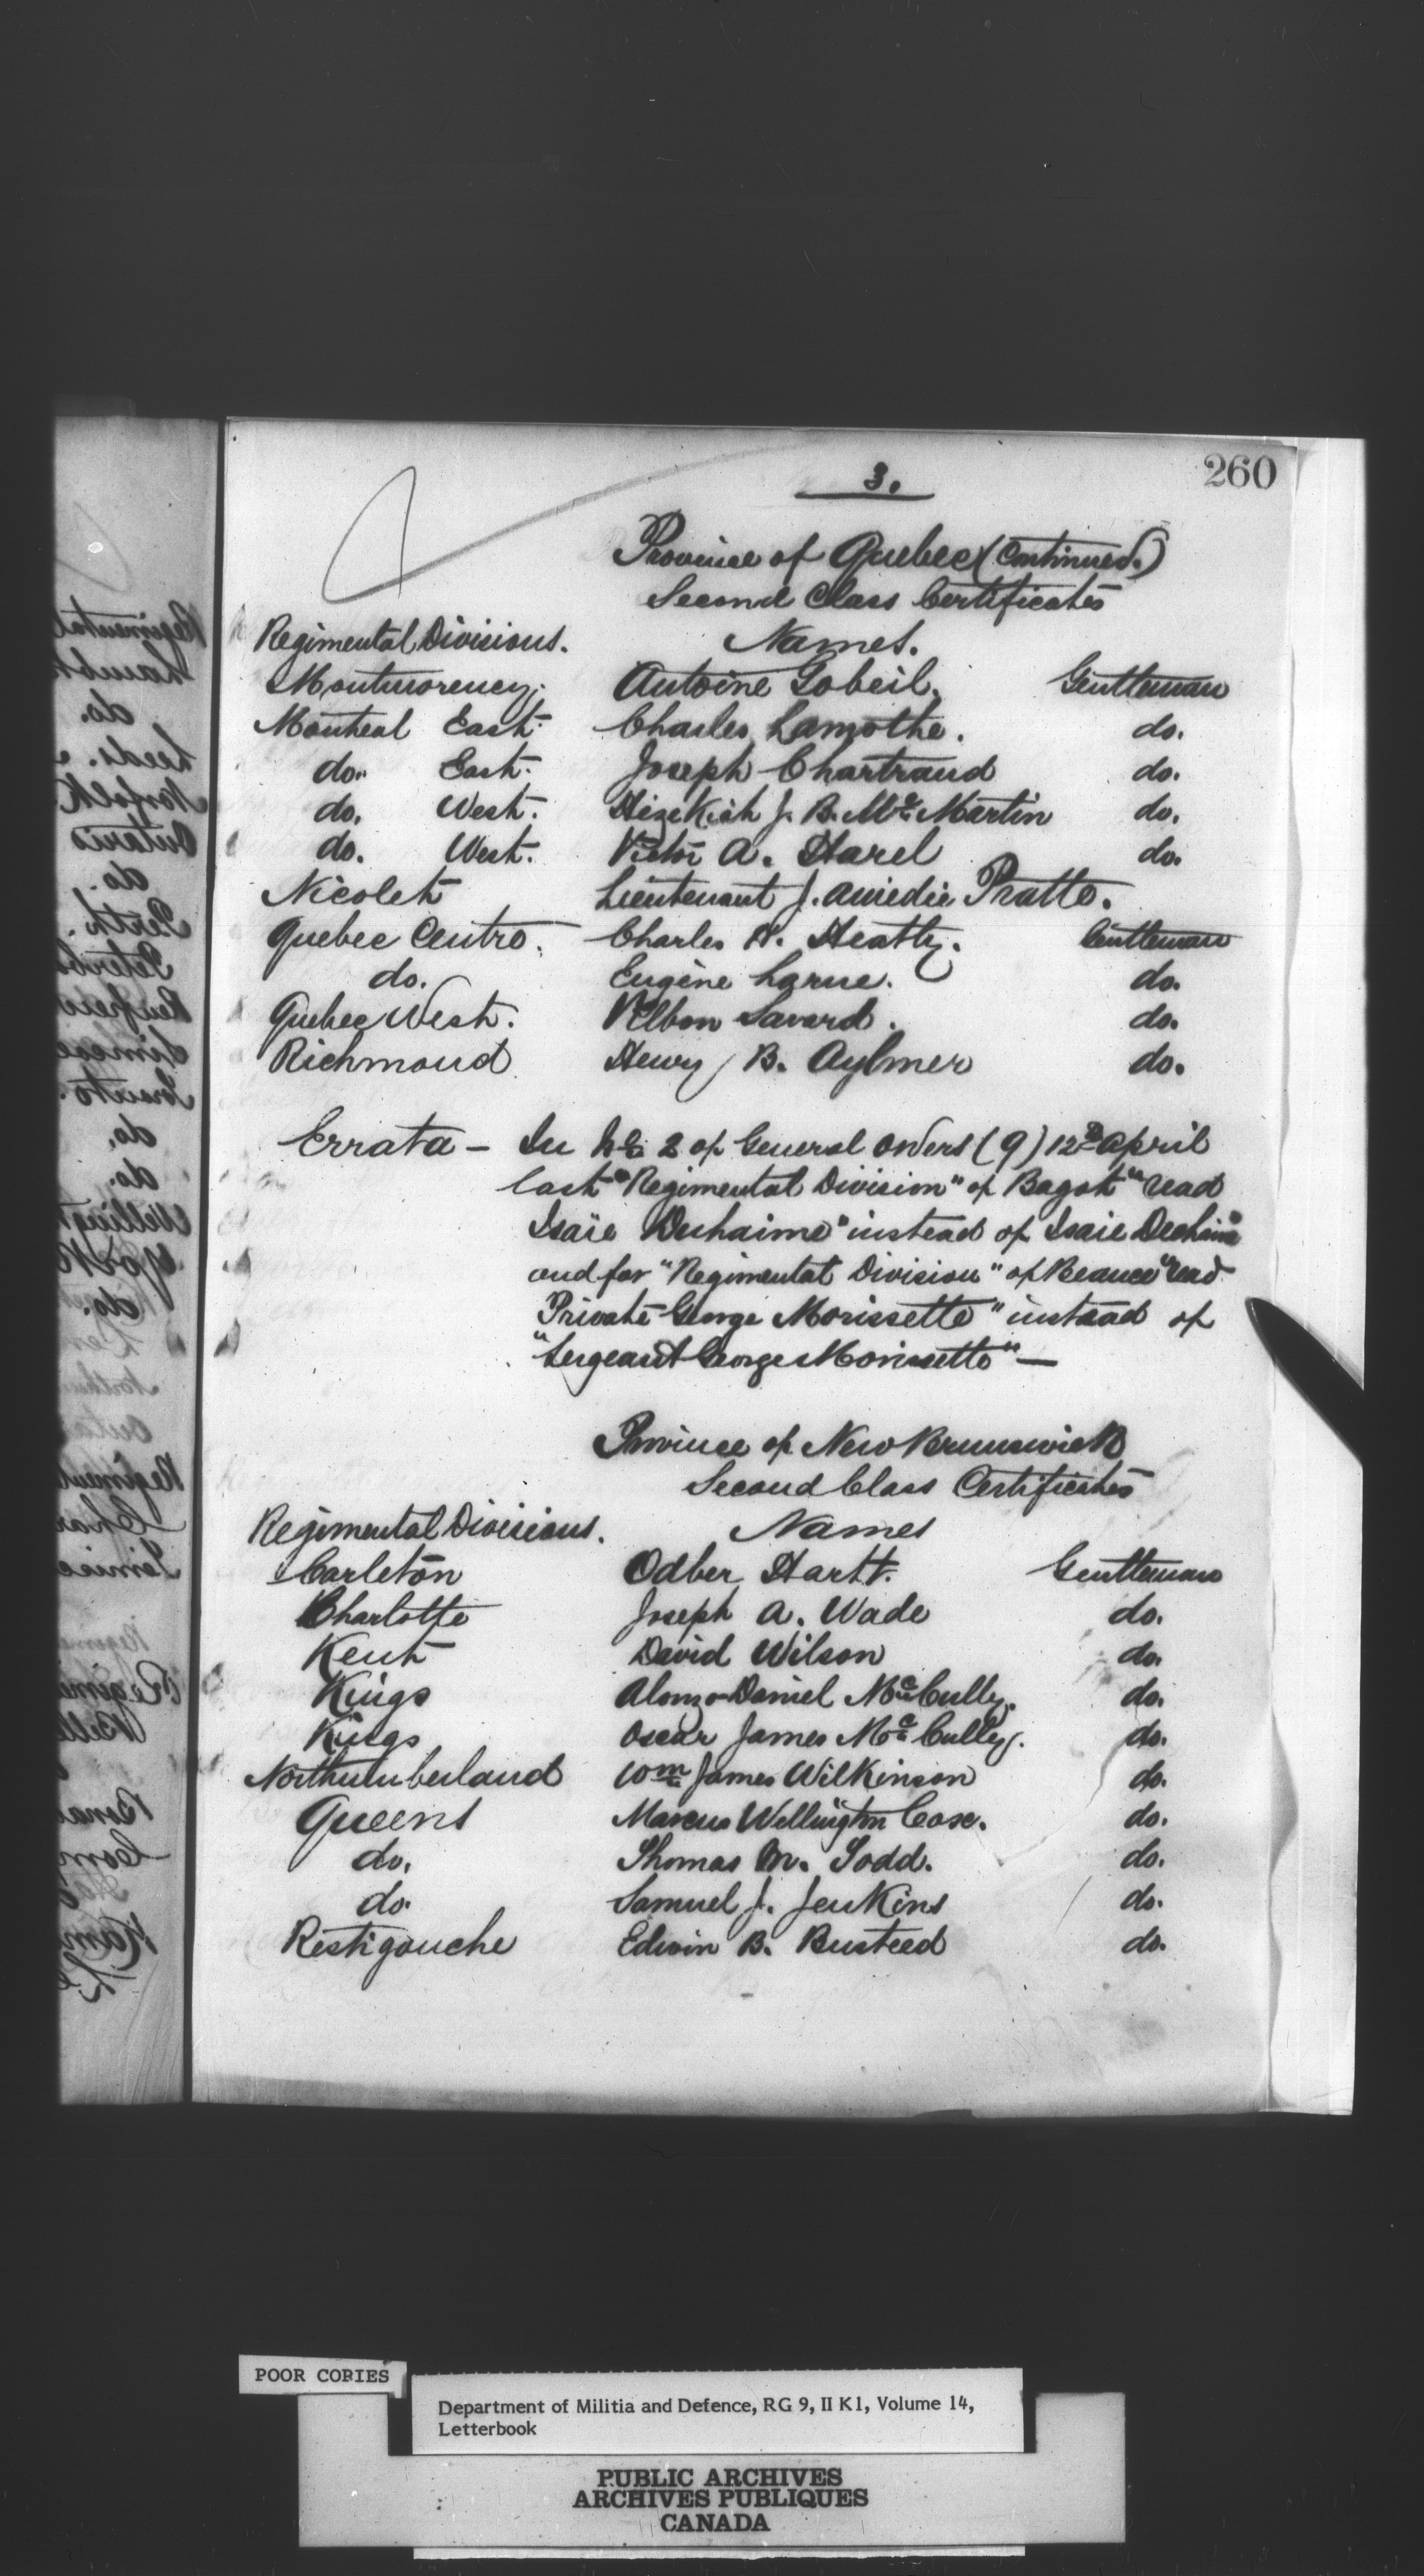 260
3.
Province of Quebec (Continued.)
Second Class Certificates
Regimental Divisions. Names.
Montmorency. Antoine Gobeil. Gentleman
Montreal East. Charles Lamothe. do.
do. East. Joseph Chartrand do.
do. West. Hizekiah J. B. Mc Martin do.
do. West. Victor A. Harel do.
Nicolet Lieutenant J. Amedie Pratte.
Quebec Centre. Charles H. Heatly. Gentleman
do. Eugène Larue. do.
Quebec West. Vilbon Savard. do.
Richmond Henry B. Aylmer do.
Errata - In No. 2 of General Orders (9) 12th April
last "Regimental Division" of Bagot "read
Isaïe Duhaime" instead of Isaie Dechaine
and for "Regimental Division" of Beauce "read
Private George Morissette" instead of
"Sergeant George Morissette" —
Province of New Brunswick
Second Class Certificates
Regimental Divisions. Names
Carleton Odber Hartt. Gentleman
Charlotte Joseph A. Wade do.
Kent David Wilson do.
Kings Alonzo Daniel McCully. do.
Kings Oscar James McCully. do.
Northumberland Wm James Wilkinson do.
Queens Marcus Wellington Case. do.
do. Thomas M. Todd. do.
do. Samuel J. Jenkins do.
Restigouche Edwin B. Busteed do.
POOR COPIES
Department of Militia and Defence, RG 9, II K1, Volume 14,
Letterbook
PUBLIC ARCHIVES
ARCHIVES PUBLIQUES
CANADA